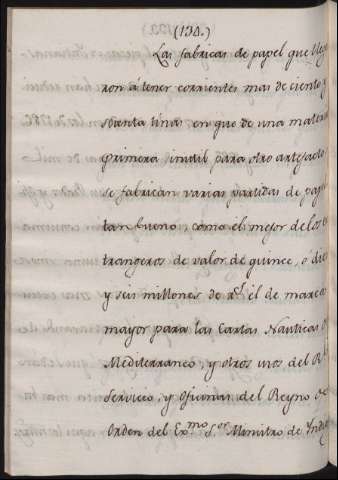 (134.)
Las fabricas de papel que llega
ron á tener corrientes mas de ciento y
sesenta tinas en que de una materia
primera inutil para otro artefacto
se fabrican varias partidas de papel
tan bueno como el mejor de los es
trangeros de valor de quince, ó diez
y seis millones de r.^s, él de marca
mayor para las Cartas Nauticas
Mediterraneo, y otros usos del R.^l
Servicio, y Oficinas del Reyno
Orden del Ex.^mo S.^or Ministro de Indi